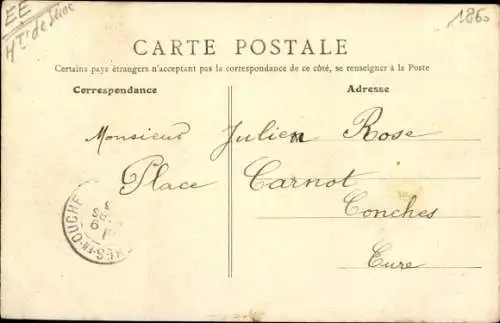 EE
Hts de Seine
1860
CARTE POSTALE
Certains pays étrangers n'acceptant pas la correspondance de ce côté, se renseigner à la Poste
Correspondance
Adresse
Monsieur Julien Rose
Place Carnot
Conches
Eure